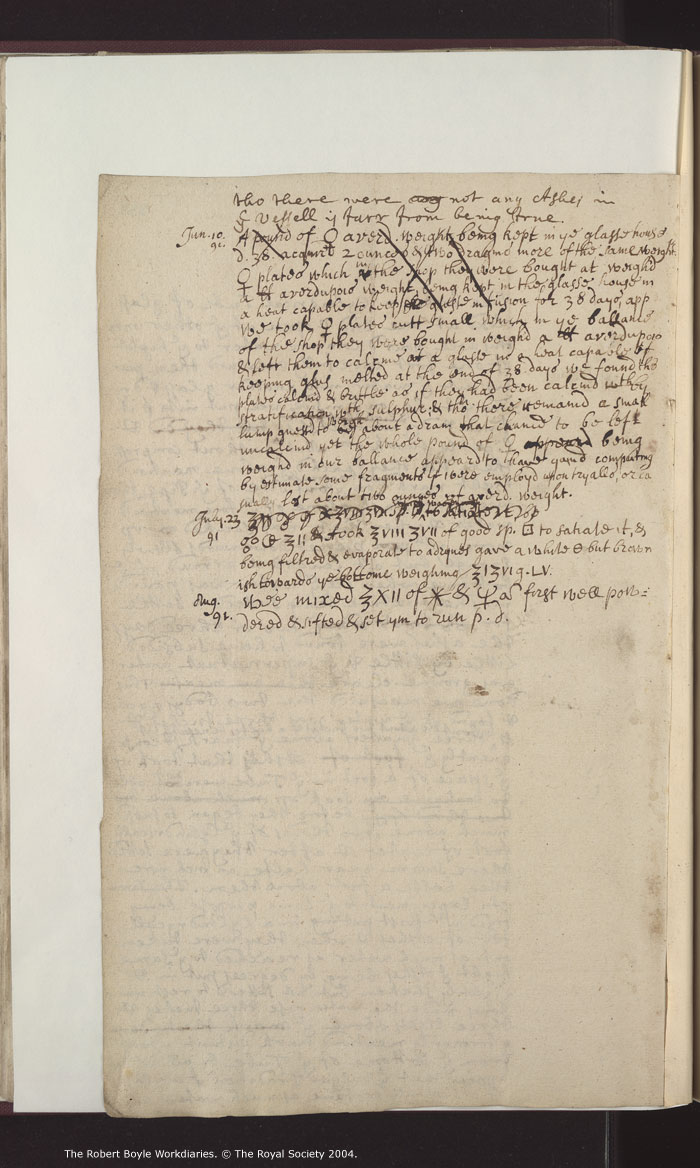 tho there were any not any Ashes in
ye Vessell is farr from being true.
Jun. 10. 91. A pound of ♀ averd. weight being kept in ye glasse house
d. 38. acquired 2 ounces & two dragms more of the same weight.
♀ plates which in the shop they were bought at weighd
a lb averdupois weight, being kept in the glasse house in
a heat capable to keep glasse in fusion for 38 days app
We took ♀ plates cutt small, which in ye ballance
of the shop they were bought in weighd a lb averdupois
& left them to calcine at a glasse in a heat capable of
keeping glass melted at the end of 38 days we found the
plates calcind & brittle as if they had been calcind with by
stratification with sulphur; & tho there remaind a small
lump guessd to be about a dram that chancd to be left
uncalcind yet the whole pound of ♀ appeard being
weighd in our ballance appeard to have gaind computing
by estimate some fragments yt were employd upon tryalls, or ca
sually lost about two ounces of averd. weight.
July. 23 91
℥II & took ℥VIII ʒVII of good sp. to satiate it, &
being filtred & evaporate to a drynes gave a white but brown
ish towards ye bottome weighing ℥I ʒVI g. LV.
Aug. 91. Wee mixed ℥XII of ✶ & ana first well pow=
dered & sifted & set ym to run p. d.
The Robert Boyle Workdiaries. © The Royal Society 2004.